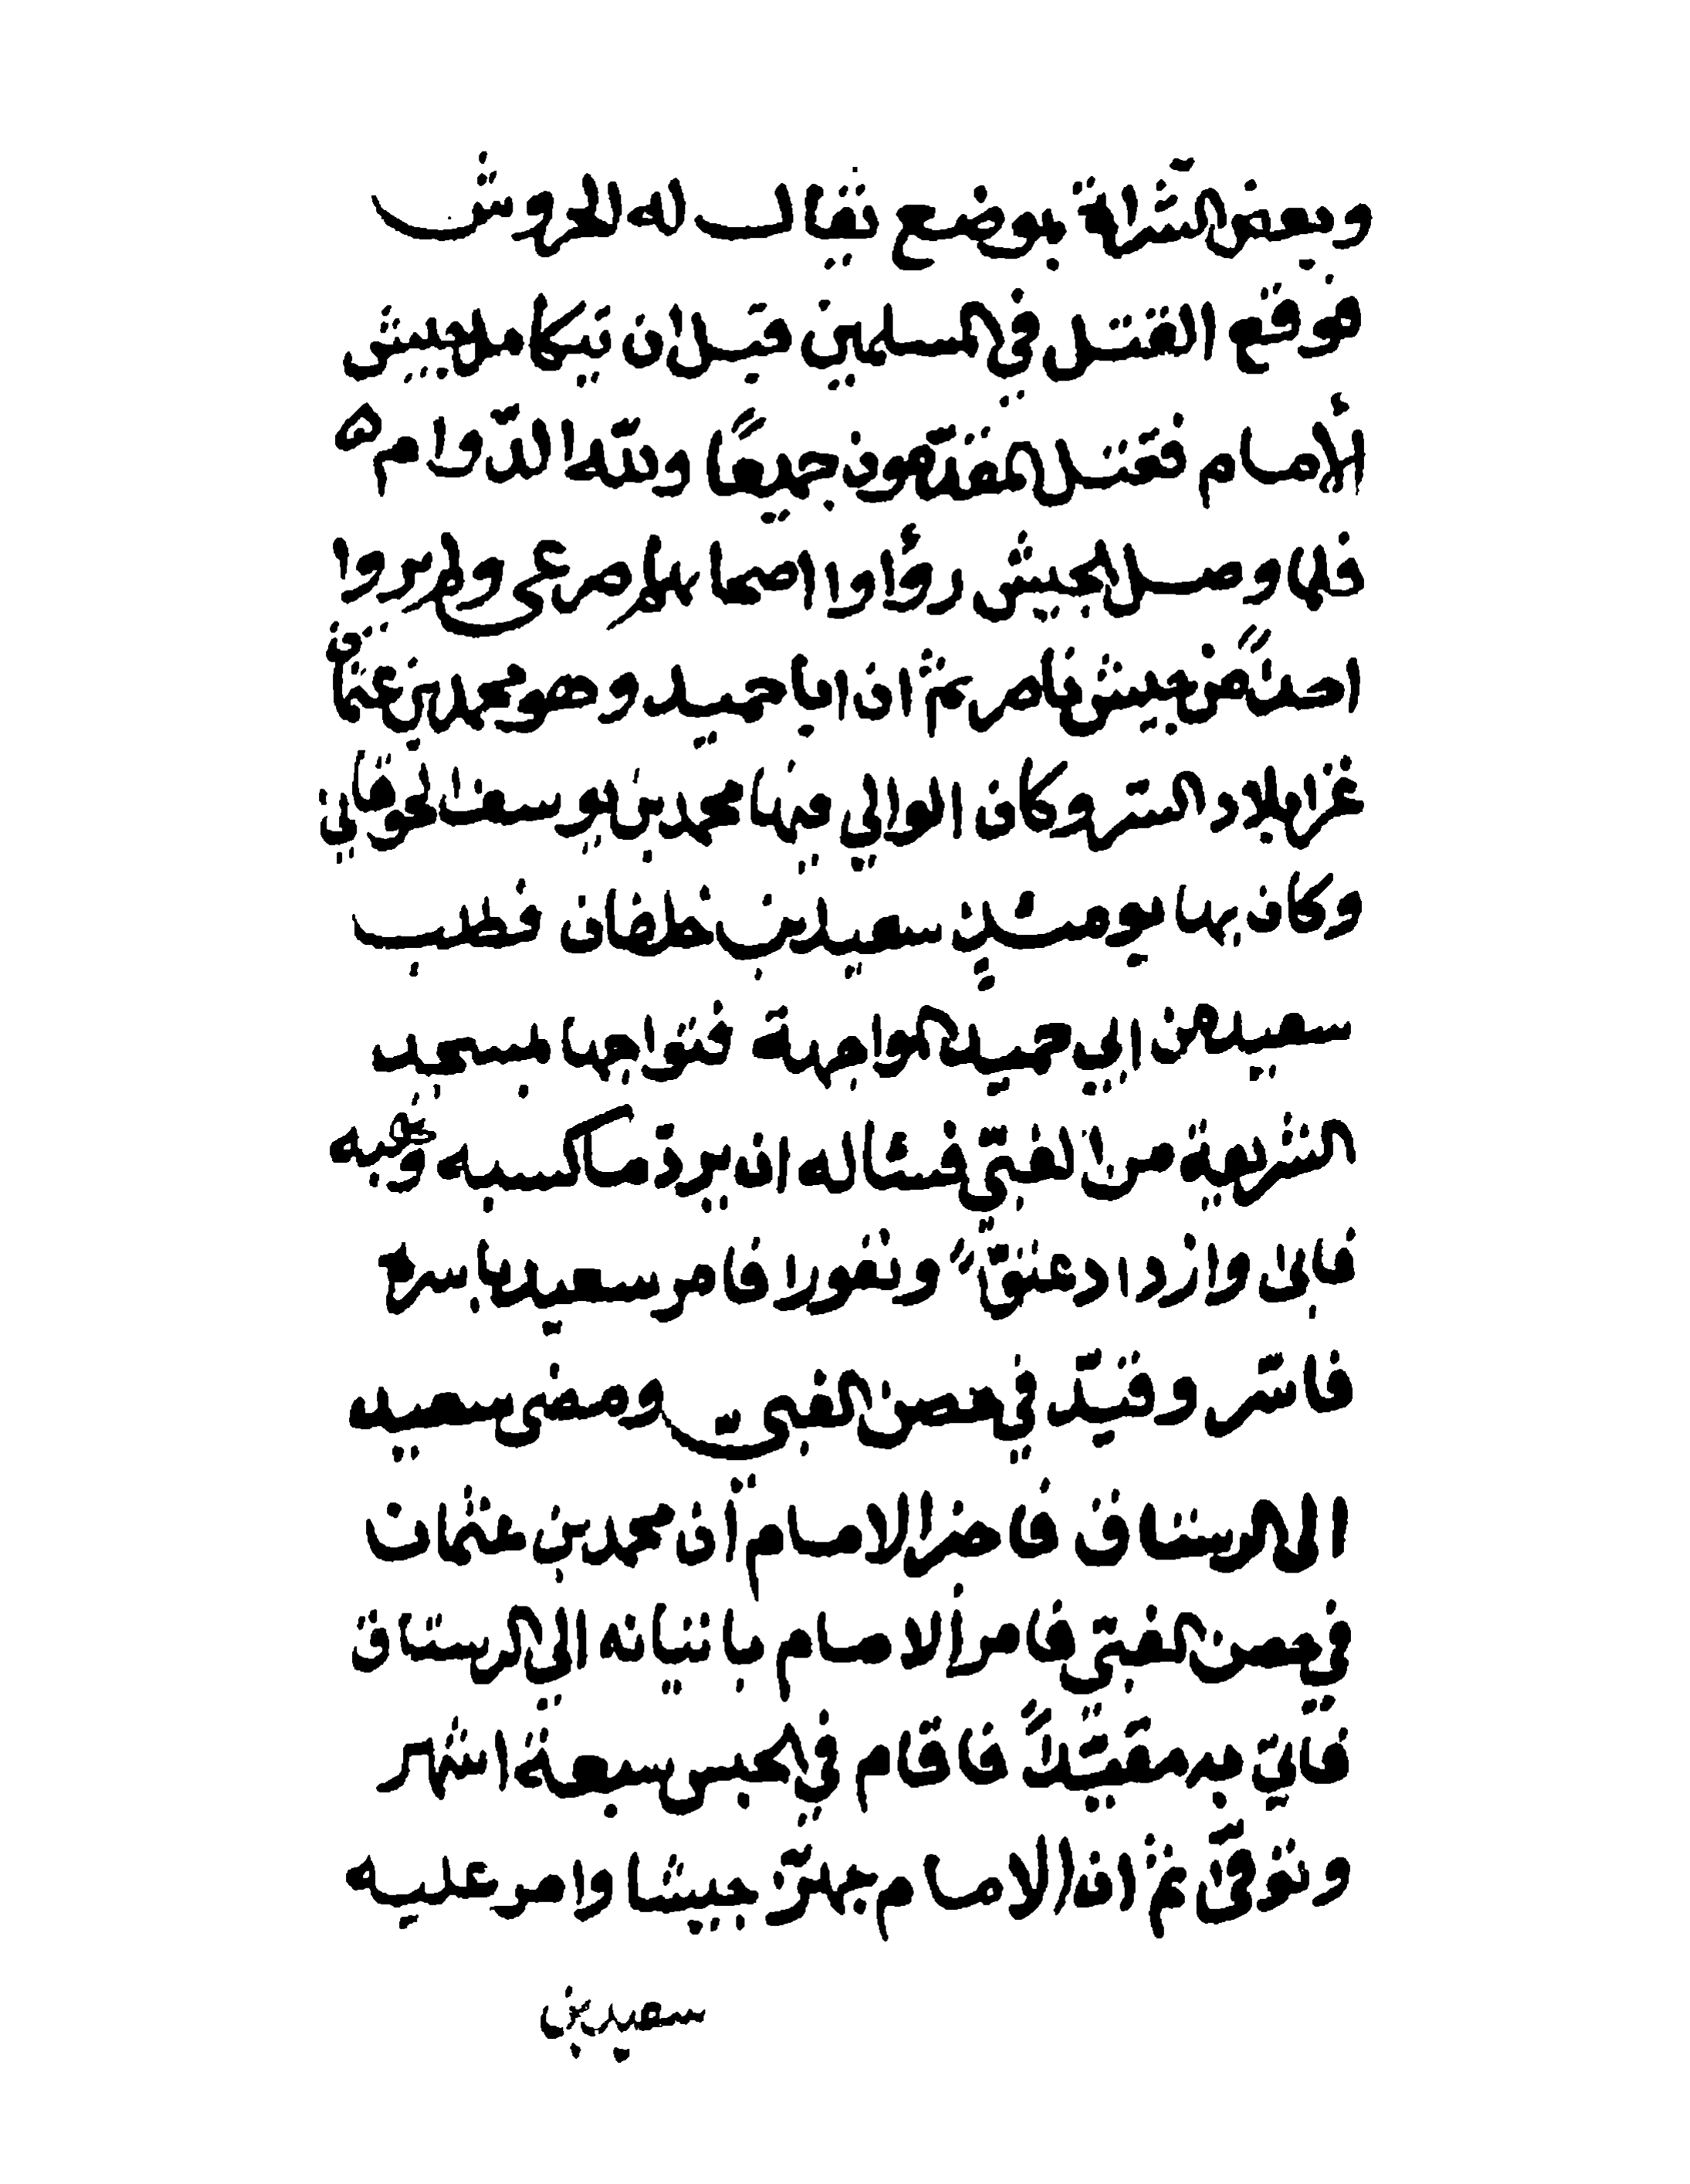 وبعض الشراة بموضع يقال له الخروش
فوقع القتل في المسلمين قبل ان يتكامل جيش
الأمام فقتل المقدّمون جميعًا ولله الدّوام ه
فلما وصل الجيش رؤاوا اصحابهم صرعى ولم يروا
احدًا من جيش ناصر ثم ان ابا حميد وهو محمد بن عثمان
غزا بلاد السر وكان الوالي فيها محمد بن يوسف الحوقاني
وكان بها يومئذٍ سعيد بن خلفان فطلب
سعيد من ابي حميد المواجهة فتواجها بمسجد
الشريعة من الغبي فسئاله ان يردّ ما كسبه ونهبه
فابى وازداد عتوّاً ونفورا فامر سعيد باسره
فاسّر وقيّد في حصن الغبي ومضى سعيد
الى الرستاق فاخبر الامام أن محمد بن عثمان
في حصن الغبي فامر الامام باتيانه الى الرستاق
فاتي به مقيّدًا فاقام في الحبس سبعة اشهر
وتوفّى ثم ان الامام جهّز جيشا وامر عليه
سعيد بن